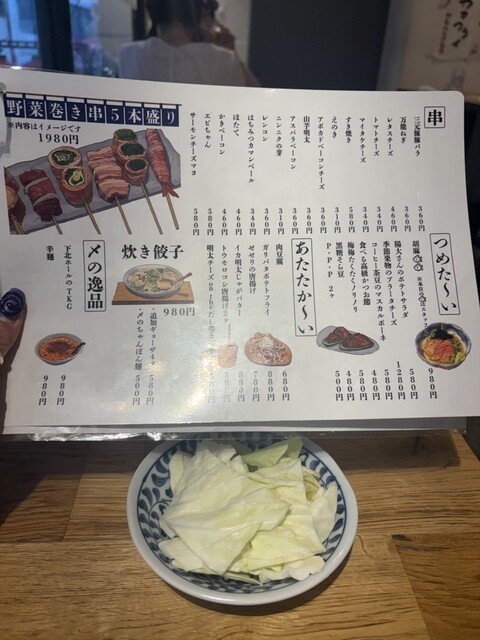 串
三元豚豚バラ 360円
万能ねぎ 360円
レタスチーズ 460円
トマトチーズ 340円
マイタケチーズ 340円
すき焼き 580円
えのき 310円
アボカドベーコンチーズ 360円
山芋明太 360円
アスパラベーコン 360円
ニンニクの芽 360円
レンコン 340円
はちみつカマンベール 340円
ほたて 460円
かきベーコン 460円
エビちゃん 580円
サーモンチーズマヨ 580円
野菜巻き串5本盛り
※内容はイメージです
1980円
つめた〜い
胡麻 980円
陽大さんのポテトサラダ 580円
季節果物のブラータチーズ 1280円
コーヒー茶豆のマスカルポーネ 580円
食べる高級かつお節 480円
梅梅たくたくノリノリ 580円
黒糖そら豆 480円
P・P・P 2ヶ 500円
あたたか〜い
肉豆腐 680円
ガリバタポテトフライ 880円
せせりの唐揚げ 780円
イカ明太じゃがバター 880円
トウモロコシ唐揚げ
明太チーズ on the だし巻き
炊き餃子
980円
・追加ギョーザ4ヶ 580円
・〆のちゃんぽん麺 500円
〆の逸品
下北ホールのTKG 980円
辛麺 980円